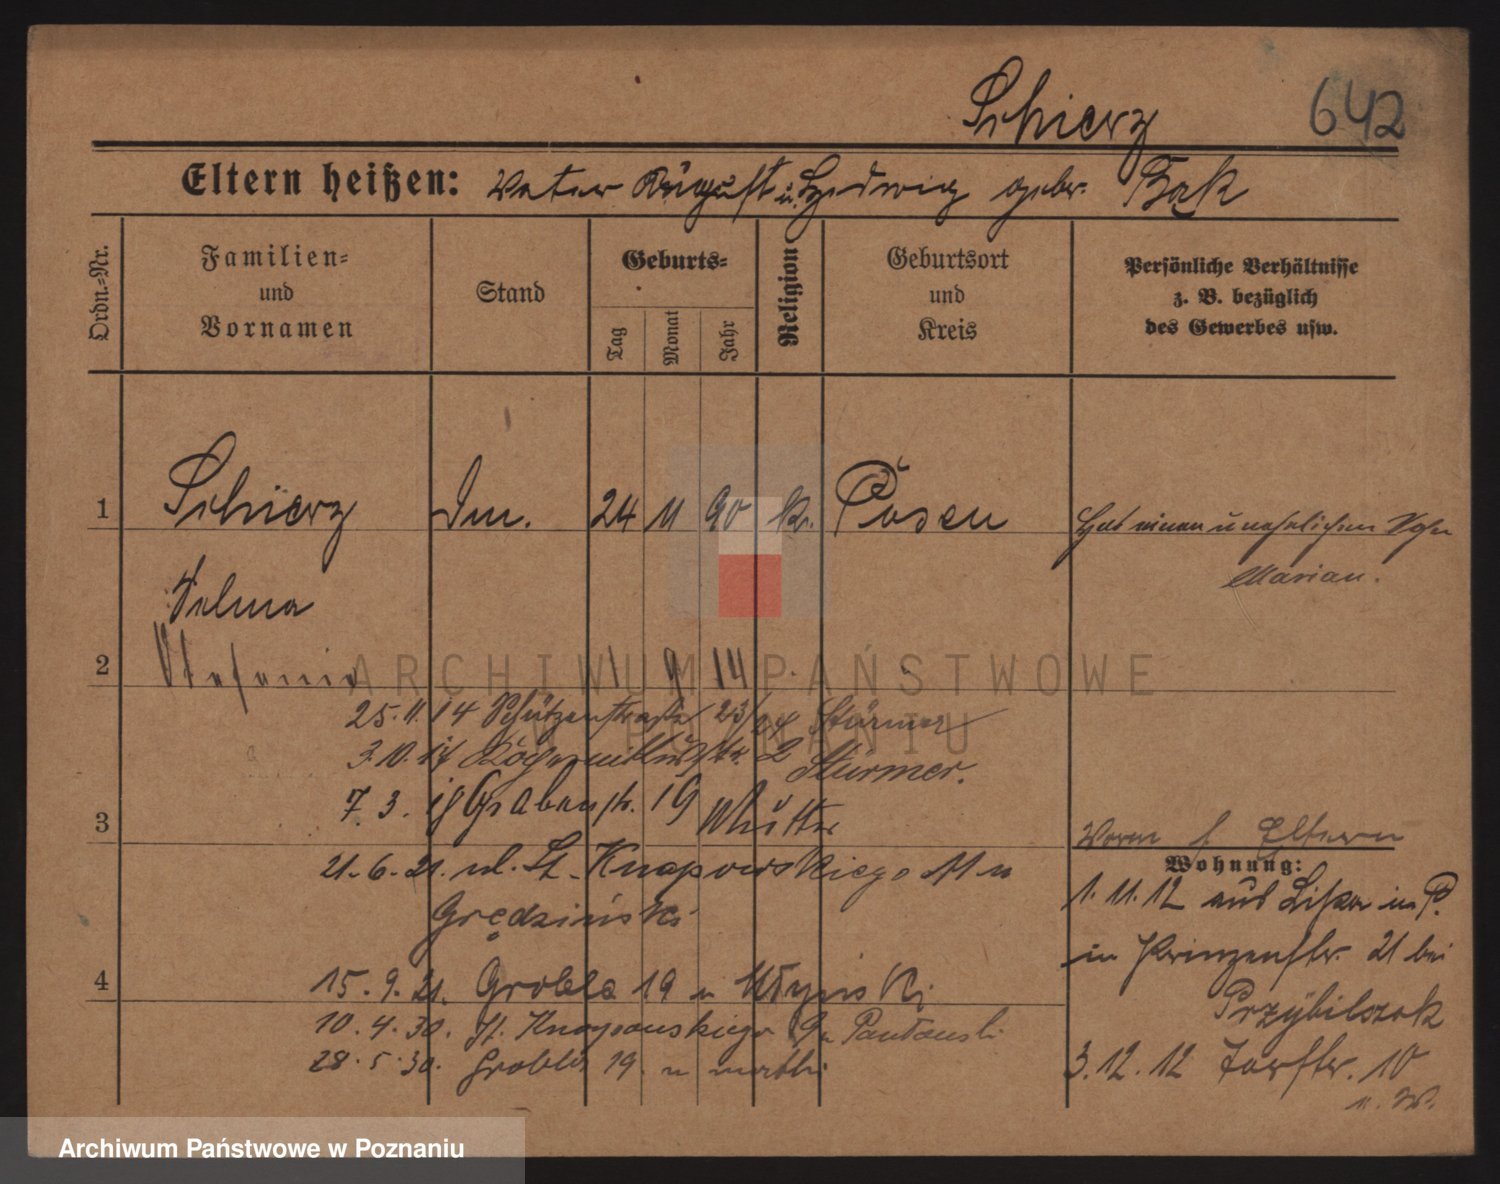 Schierz 642
Eltern heißen: Vater August u. Hedwig gebr. Bąk
Ordn.-Nr.
Familien-
und
Vornamen
Stand
Geburts-
Tag
Monat
Jahr
Religion
Geburtsort
und
Kreis
Persönliche Verhältnisse
z. B. bezüglich
des Gewerbes usw.
1 Schierz 24 11 90 k. Posen Hat einen unehelichen Sohn
Marian.
Selma
2 Stefania 1 9 14
ARCHIWUM PAŃSTWOWE
W POZNANIU
25.11.14 Schützenstraße 23/24 Stürmer
3.10.17 2 Stürmer.
7.3.18 Grabenstr. 19 Mutter
3
Vorm f Eltern
21.6.21. ul. St. Knapowskiego 11 u
Grędziński
Wohnung:
1.11.12 aus in P.
in Prinzenstr. 21 bei
Przybilszak
4
15.9.21. Grobla 19 u
10.4.30. St. Knapowskiego 9 u
28.5.30. Grobla 19 u matki
3.12.12 Torstr. 10
u. W.
Archiwum Państwowe w Poznaniu